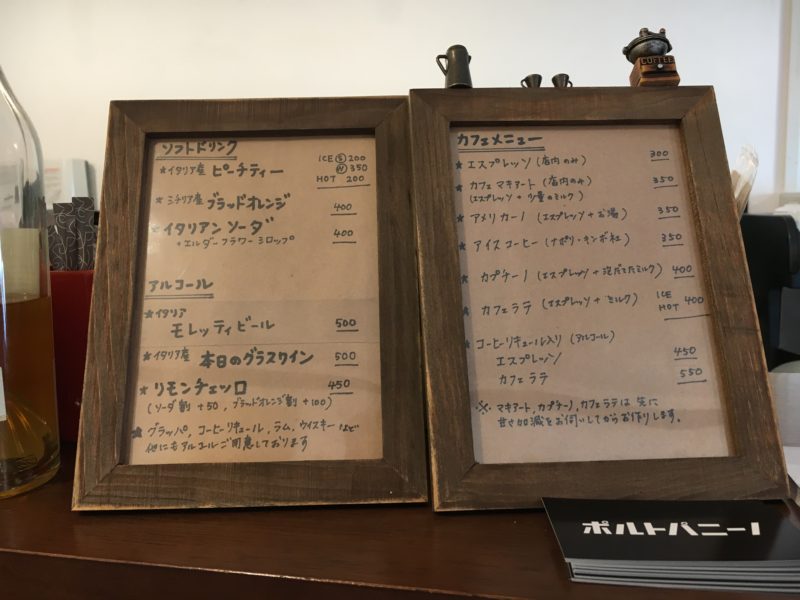 ソフトドリンク
★イタリア産 ピーチティー ICE Ⓢ 200
Ⓦ 350
HOT 200
★シチリア産 ブラッドオレンジ 400
★イタリアン ソーダ 400
+エルダーフラワーシロップ
アルコール
★イタリア
モレッティビール 500
★イタリア産 本日のグラスワイン 500
★リモンチェッロ 450
(ソーダ割 +50, ブラッドオレンジ割 +100)
★グラッパ, コーヒーリキュール, ラム, ウイスキーなど
他にもアルコールご用意しております
COFFEE
カフェメニュー
★エスプレッソ (店内のみ) 300
★カフェマキアート (店内のみ) 350
(エスプレッソ + 少量のミルク)
★アメリカーノ (エスプレッソ + お湯) 350
★アイスコーヒー (ナポリ・キンボ社) 350
★カプチーノ (エスプレッソ + 泡だてたミルク) 400
★カフェラテ (エスプレッソ + ミルク) ICE
HOT 400
★コーヒーリキュール入り (アルコール)
エスプレッソ 450
カフェラテ 550
※マキアート, カプチーノ, カフェラテは 先に
甘さ加減をお伺いしてからお作りします。
ポルトパニーノ